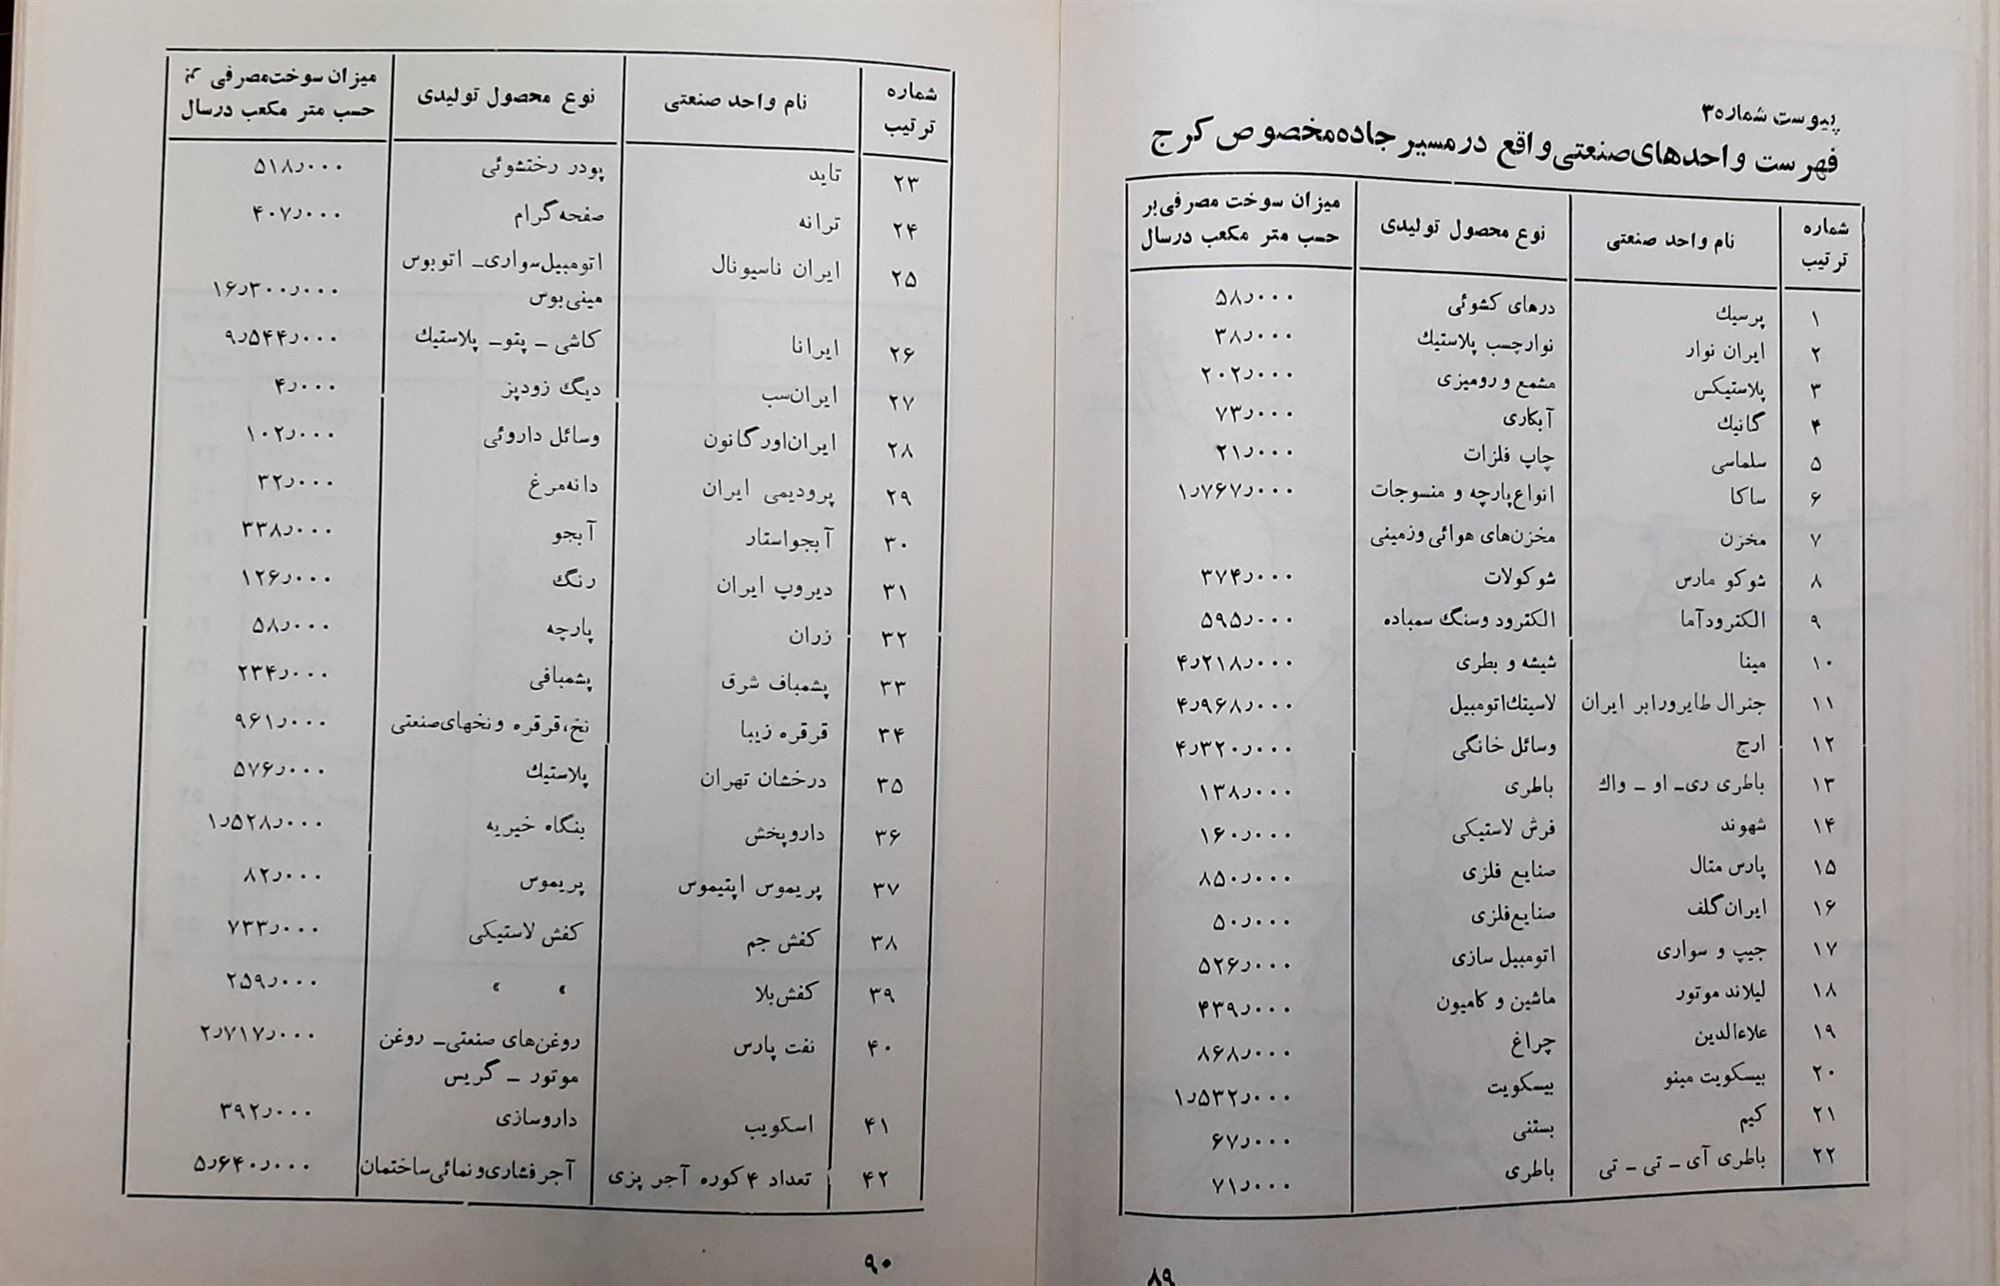 پیوست شماره ۳
فهرست واحدهای صنعتی واقع درمسیر جاده مخصوص کرج
شماره ترتیب | نام واحد صنعتی | نوع محصول تولیدی | میزان سوخت مصرفی بر حسب متر مکعب درسال
۱ | پرسیك | درهای کشوئی | ۵۸٫۰۰۰
۲ | ایران نوار | نوارچسب پلاستیك | ۳۸٫۰۰۰
۳ | پلاستیکس | مشمع و رومیزی | ۲۰۲٫۰۰۰
۴ | گانیك | آبکاری | ۷۳٫۰۰۰
۵ | سلماسی | چاپ فلزات | ۲۱٫۰۰۰
۶ | ساکا | انواع پارچه و منسوجات | ۱٫۷۶۷٫۰۰۰
۷ | مخزن | مخزن‌های هوائی وزمینی
۸ | شوکو مارس | شوکولات | ۳۷۴٫۰۰۰
۹ | الکترودآما | الکترود وسنگ سمباده | ۵۹۵٫۰۰۰
۱۰ | مینا | شیشه و بطری | ۴٫۲۱۸٫۰۰۰
۱۱ | جنرال طایرورابر ایران | لاسیتك اتومبیل | ۴٫۹۶۸٫۰۰۰
۱۲ | ارج | وسائل خانگی | ۴٫۳۲۰٫۰۰۰
۱۳ | باطری ری ـ او ـ واك | باطری | ۱۳۸٫۰۰۰
۱۴ | شهوند | فرش لاستیکی | ۱۶۰٫۰۰۰
۱۵ | پارس متال | صنایع فلزی | ۸۵۰٫۰۰۰
۱۶ | ایران گلف | صنایع فلزی | ۵۰٫۰۰۰
۱۷ | جیپ و سواری | اتومبیل سازی | ۵۲۶٫۰۰۰
۱۸ | لیلاند موتور | ماشین و کامیون | ۴۳۹٫۰۰۰
۱۹ | علاءالدین | چراغ | ۸۶۸٫۰۰۰
۲۰ | بیسکویت مینو | بیسکویت | ۱٫۵۳۲٫۰۰۰
۲۱ | کیم | بستنی | ۶۷٫۰۰۰
۲۲ | باطری آی ـ تی ـ تی | باطری | ۷۱٫۰۰۰
۸۹
شماره ترتیب | نام واحد صنعتی | نوع محصول تولیدی | میزان سوخت مصرفی حسب متر مکعب درسال
۲۳ | تاید | پودر رختشوئی | ۵۱۸٫۰۰۰
۲۴ | ترانه | صفحه گرام | ۴۰۷٫۰۰۰
۲۵ | ایران ناسیونال | اتومبیل سواری ـ اتوبوس
مینی بوس | ۱۶٫۳۰۰٫۰۰۰
۲۶ | ایرانا | کاشی ـ پتو ـ پلاستیك | ۹٫۵۴۴٫۰۰۰
۲۷ | ایران سب | دیگ زودپز | ۴٫۰۰۰
۲۸ | ایران اورگانون | وسائل داروئی | ۱۰۲٫۰۰۰
۲۹ | پرودیمی ایران | دانه مرغ | ۳۲٫۰۰۰
۳۰ | آبجو استار | آبجو | ۳۳۸٫۰۰۰
۳۱ | دیروپ ایران | رنگ | ۱۲۶٫۰۰۰
۳۲ | زران | پارچه | ۵۸٫۰۰۰
۳۳ | پشمباف شرق | پشمبافی | ۲۳۴٫۰۰۰
۳۴ | قرقره زیبا | نخ، قرقره ونخهای صنعتی | ۹۶۱٫۰۰۰
۳۵ | درخشان تهران | پلاستیك | ۵۷۶٫۰۰۰
۳۶ | داروپخش | بنگاه خیریه | ۱٫۵۲۸٫۰۰۰
۳۷ | پریموس اپتیموس | پریموس | ۸۲٫۰۰۰
۳۸ | کفش جم | کفش لاستیکی | ۷۳۳٫۰۰۰
۳۹ | کفش بلا | « « | ۲۵۹٫۰۰۰
۴۰ | نفت پارس | روغن‌های صنعتی ـ روغن | ۲٫۷۱۷٫۰۰۰
موتور ـ گریس
۴۱ | اسکویب | داروسازی | ۳۹۲٫۰۰۰
۴۲ | تعداد ۴ کوره آجر پزی | آجر فشاری و نمائی ساختمان | ۵٫۶۴۰٫۰۰۰
۹۰